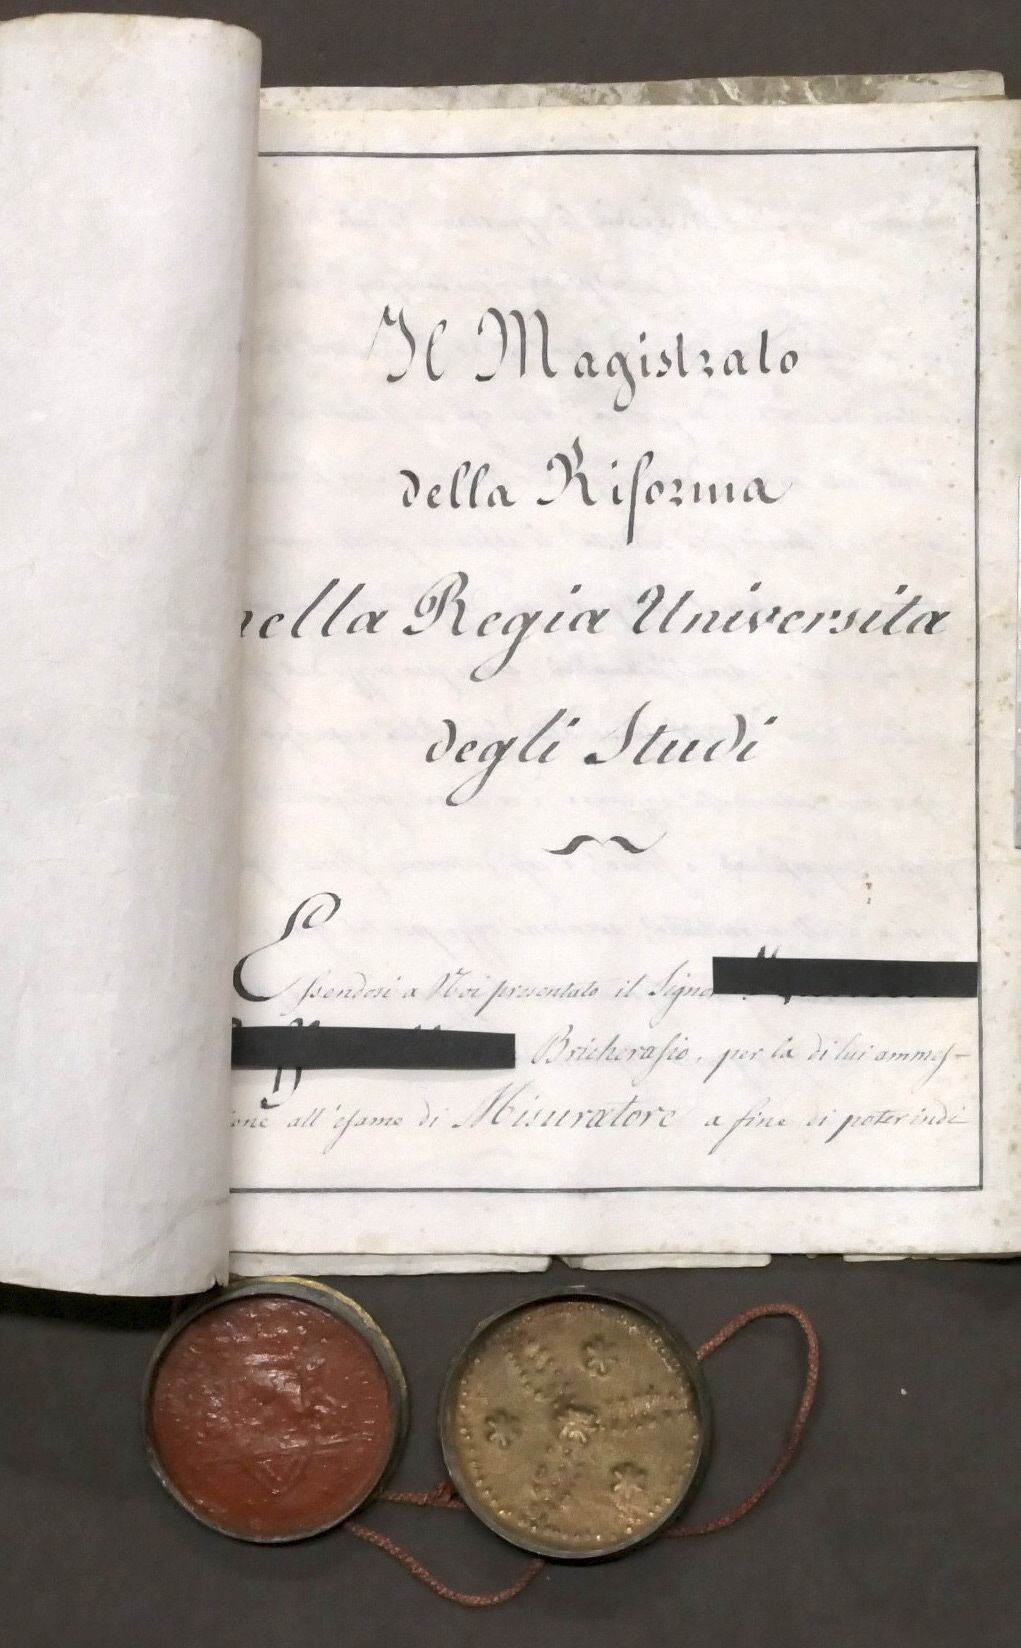 Il Magistrato
della Riforma
nella Regia Universita
degli Studi
Essendosi a Noi presentato il Signor
Bricherasio, per la di lui ammes-
ione all'esame di Misuratore a fine di poter indi